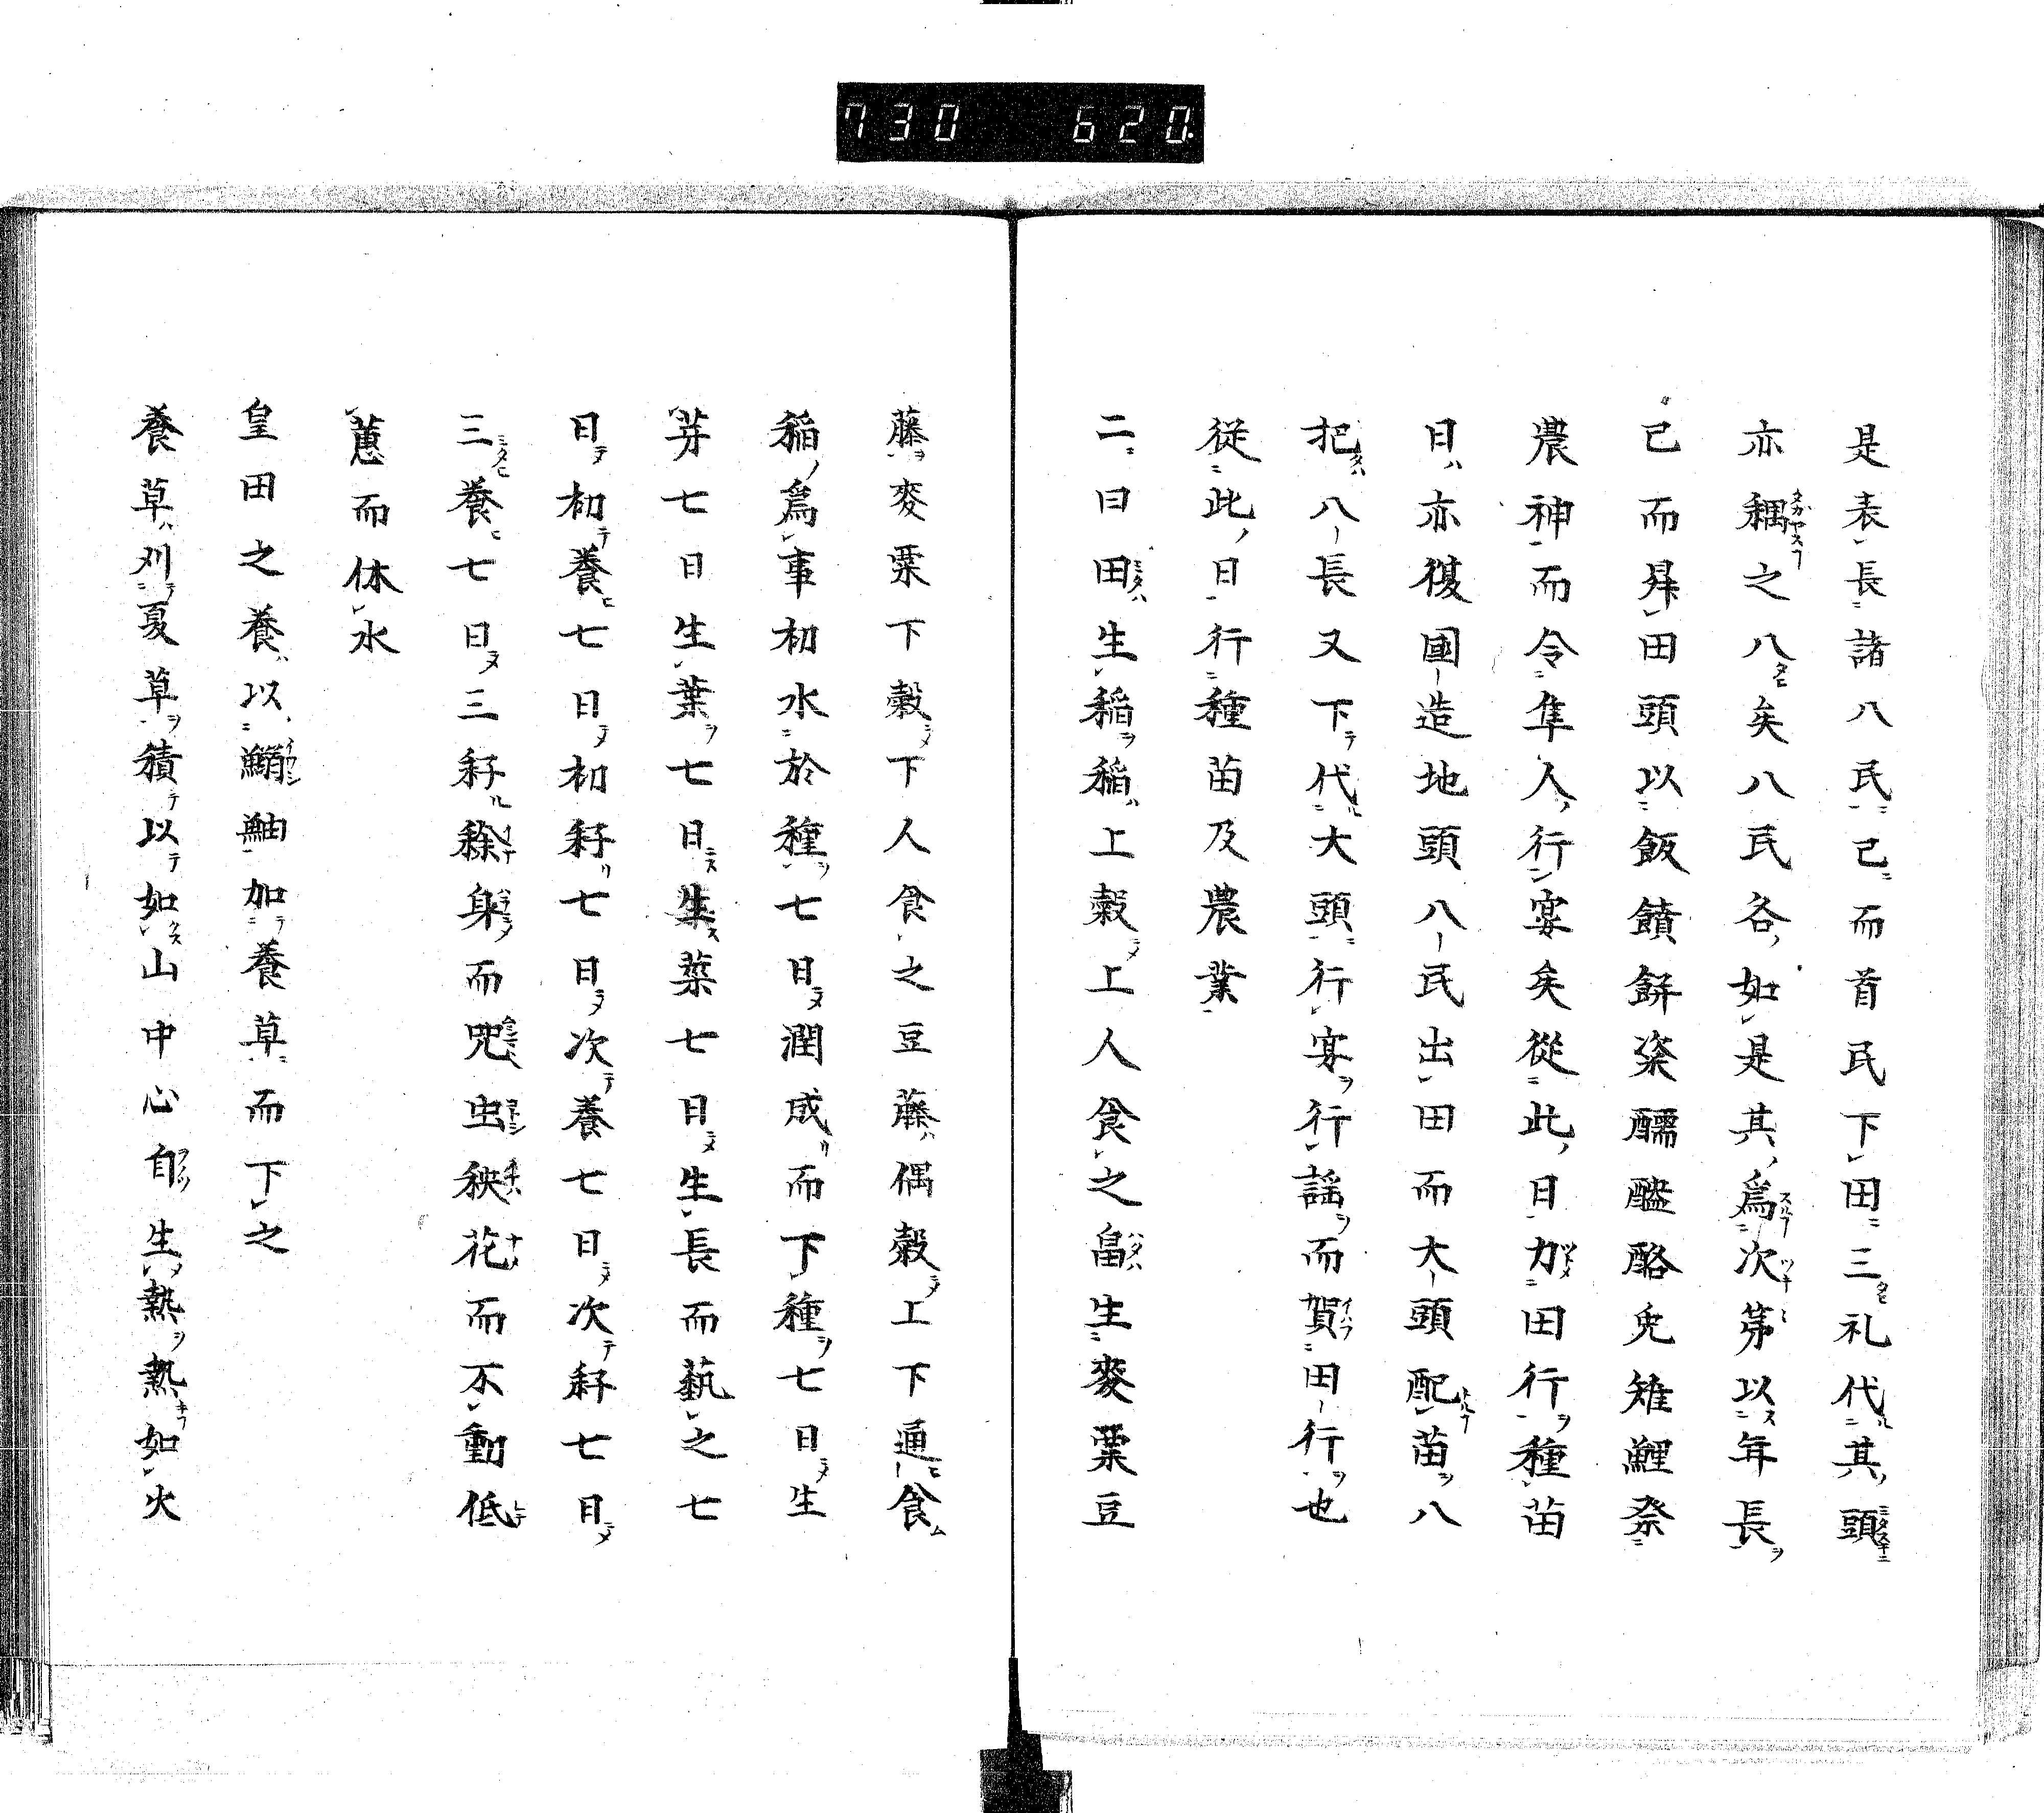 730 620.
是表長諸八民已而首民下田三礼代其頭
亦耦之八矣八民各如是其為次第以年長
已而昇田頭以飯饙餅粢醹醯酪兎雉鯉祭
農神而令隼人行宴矣從此日力田行種苗
日亦復國造地頭八民出田而大頭配苗八
把八長又下代大頭行宴行謡而賀田行也
從此日行種苗及農業
二曰田生稲稲上穀上人食之畠生麥粟豆
藤麥粟下穀下人食之豆藤偶穀上下通食
稲為事初水於種七日潤成而下種七日生
芽七日生葉七日生蘂七日生長而藝之七
日初養七日初秄七日次養七日次秄七日
三養七日三秄稌身而咒虫秧花而不動低
蔥而休水
皇田之養以鰯鮋加養草而下之
養草刈夏草積以如山中心自生熱熱如火